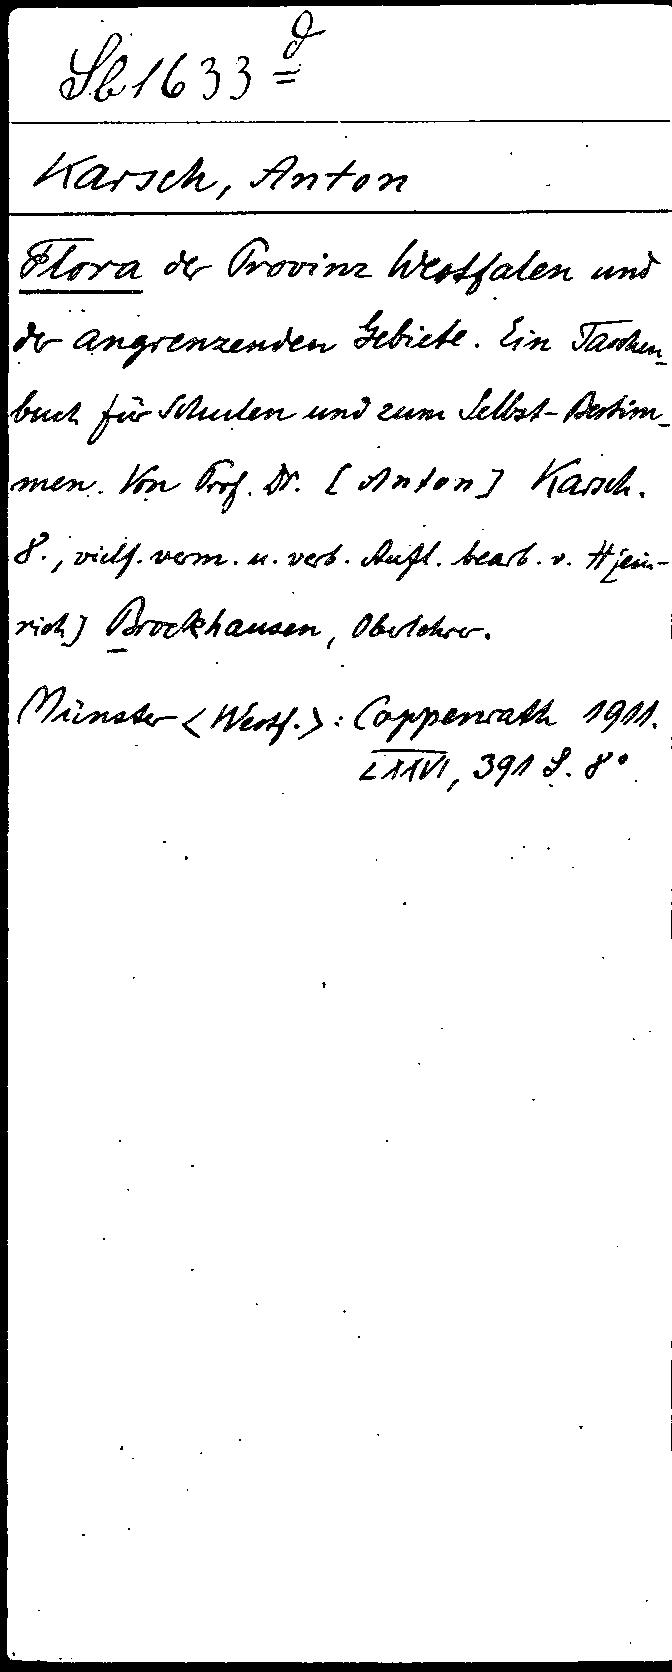 Sb 1633 d
Karsch, Anton
Flora der Provinz Westfalen und
der angrenzenden Gebiete. Ein Taschen-
buch für Schulen und zum Selbst-Bestim-
men. Von Prof. Dr. [Anton] Karsch.
8., vielf. verm. u. verb. Aufl. bearb. v. H[ein-
rich] Brockhausen, Oberlehrer.
Münster <Westf.>: Coppenrath 1911.
LXXVI, 391 S. 8°